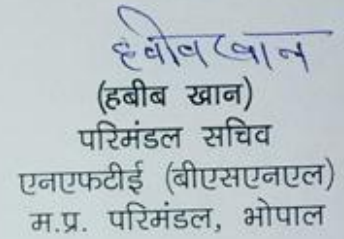 हबीब खान
(हबीब खान)
परिमंडल सचिव
एनएफटीई (बीएसएनएल)
म.प्र. परिमंडल, भोपाल